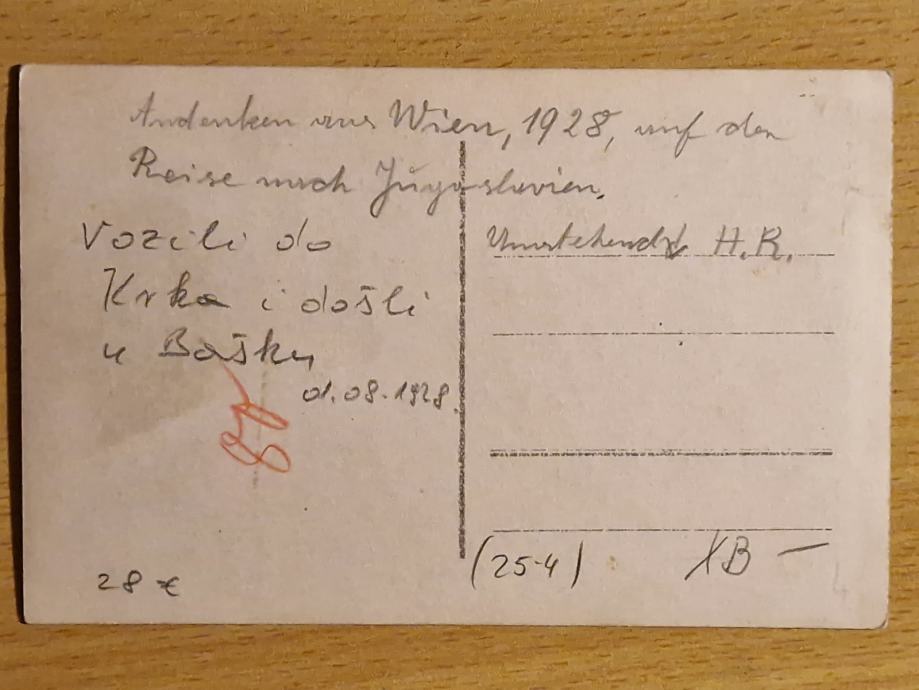 Andenken aus Wien, 1928, auf der
Reise nach Jugoslavien.
Umstehend H.R.
Vozili do
Krka i došli
u Bašku
01.08.1928.
28 €
(25-4)
XB —